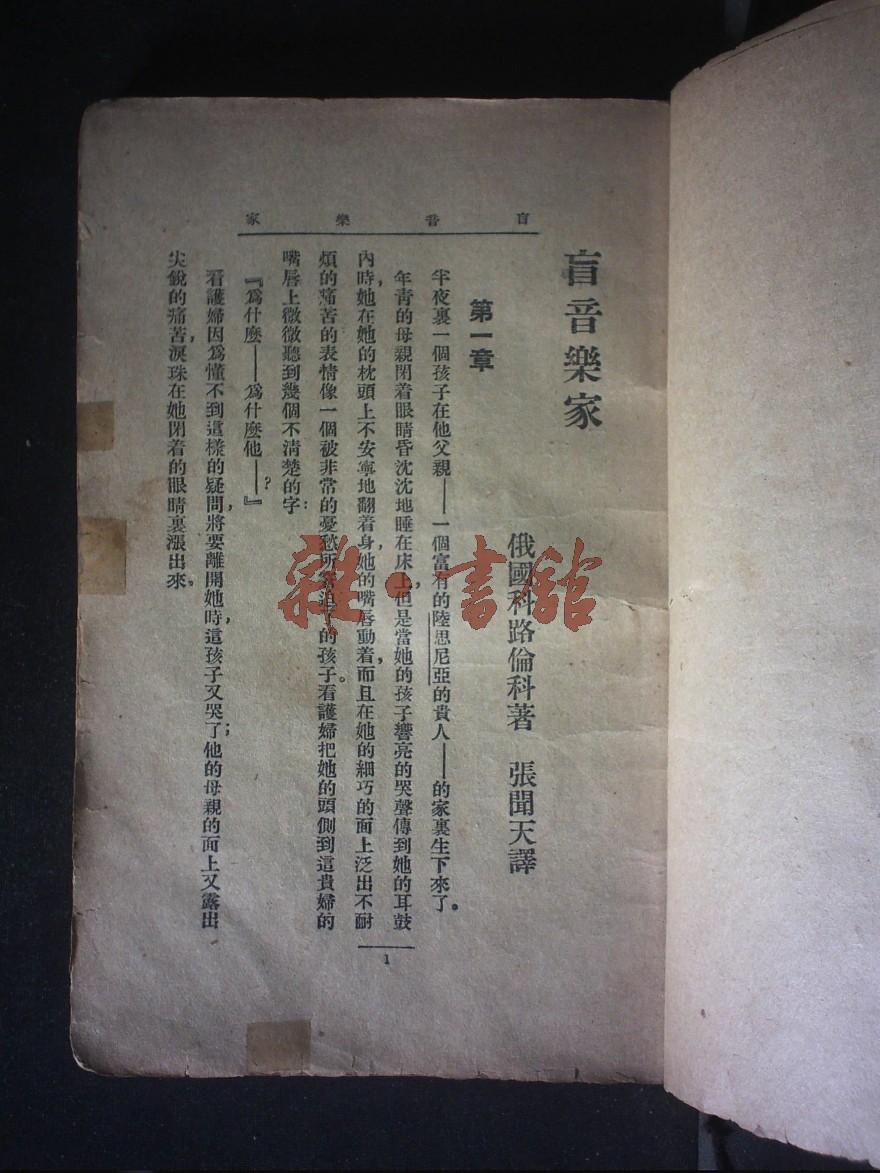 盲音樂家
盲音樂家
俄國科路倫科著　張聞天譯
第一章
半夜裏一個孩子在他父親——一個富有的陸思尼亞的貴人——的家裏生下來了。
年青的母親閉着眼睛昏沈沈地睡在床上,但是當她的孩子響亮的哭聲傳到她的耳鼓
內時,她在她的枕頭上不安寧地翻着身,她的嘴唇動着,而且在她的細巧的面上泛出不耐
煩的痛苦的表情像一個被非常的憂愁所 的孩子。看護婦把她的頭側到這貴婦的
嘴唇上微微聽到幾個不清楚的字:
『爲什麽——爲什麽他——?』
看護婦因爲懂不到這樣的疑問,將要離開她時,這孩子又哭了;他的母親的面上又露出
尖銳的痛苦,淚珠在她閉着的眼睛裏漲出來。
1
雜·書館